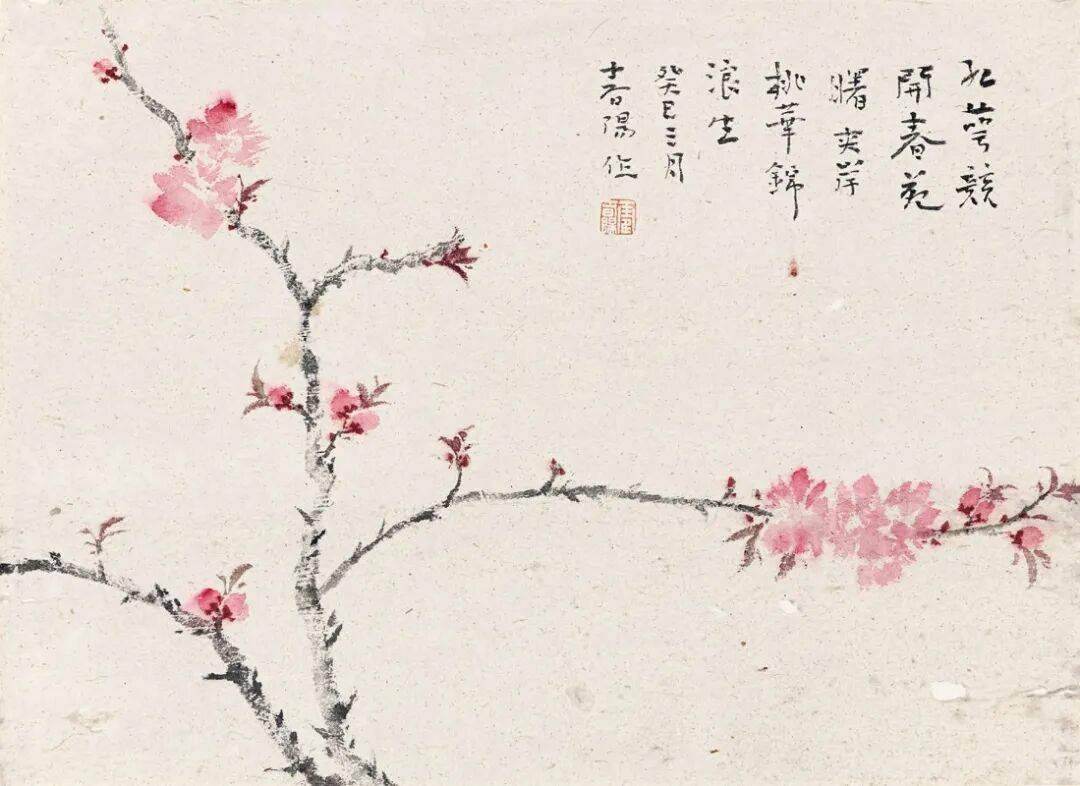 紅萼競
開春苑
曙夾岸
桃華錦
浪生
癸巳三月
陽作